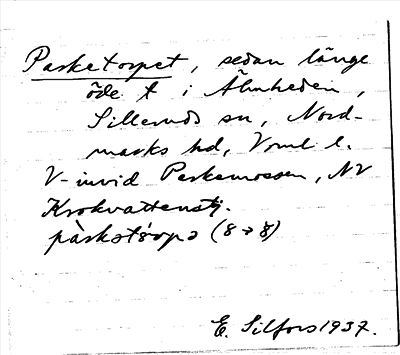 Parketorpet, sedan länge
öde t i Älmheden,
Silleruds sn, Nord-
marks hd, Vrml l.
V-invid Perkemossen, NV
Krokvattenstj.
pàrkstó̀rpə (8→8)
E. Silfors 1937.